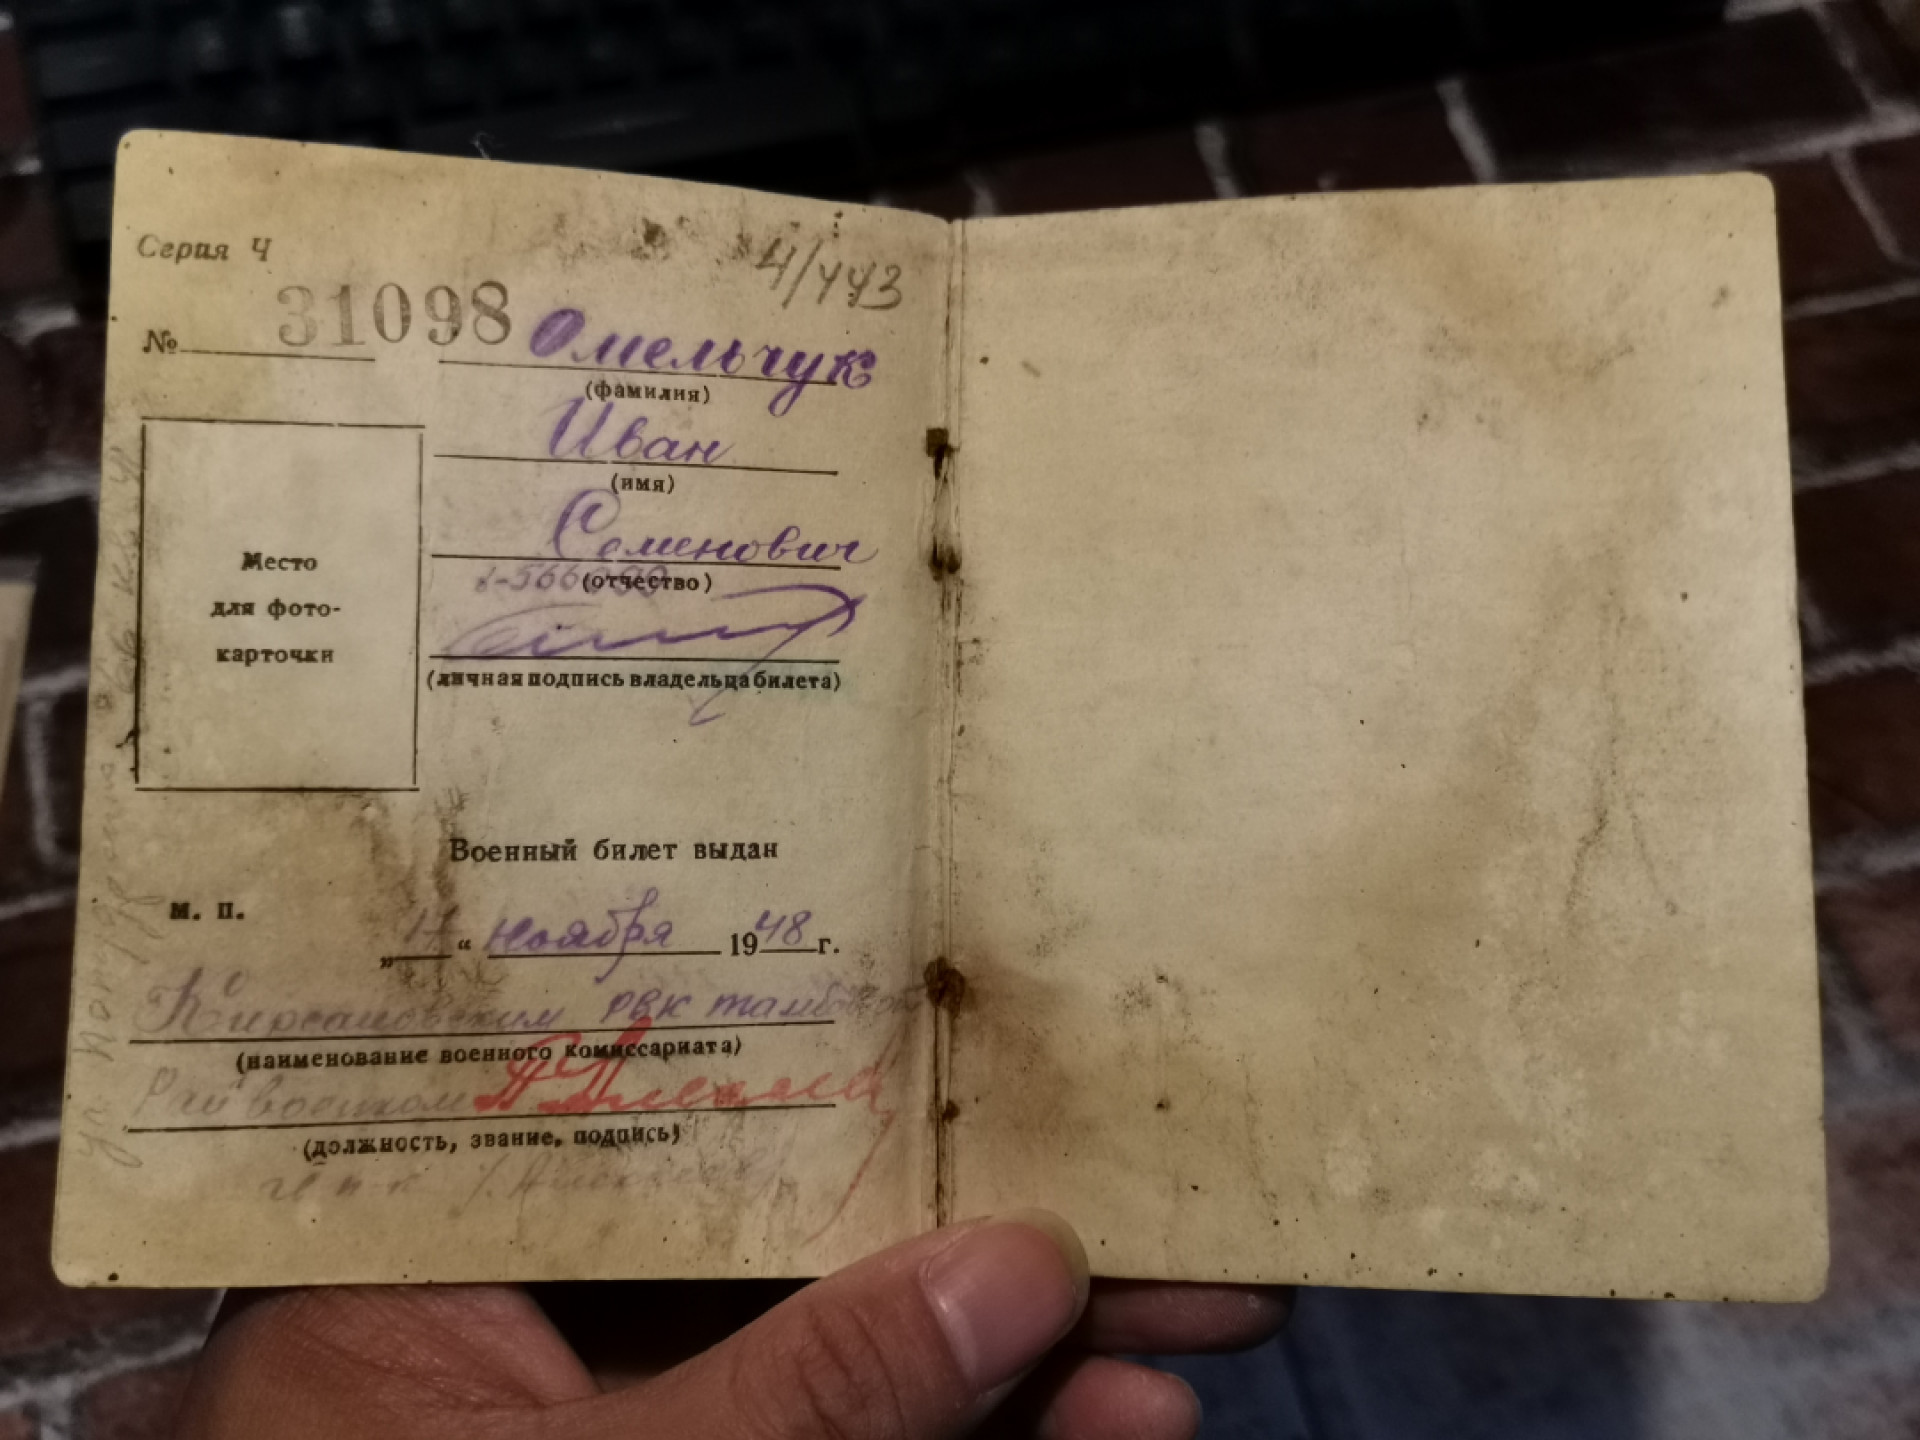 Серия Ч
4/443
№ 31098
Омельчук
(фамилия)
Иван
(имя)
Семенович
(отчество)
(личная подпись владельца билета)
Место
для фото-
карточки
Военный билет выдан
М. П.
„ “ ноября 1948 г.
Кирсановским РВК
(наименование военного комиссариата)
Райвоенком
(должность, звание, подпись)